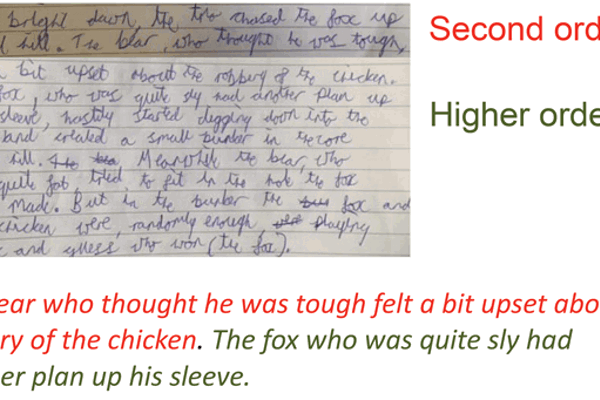 bright dawn, the trio chased the fox up
hill. The bear, who thought he was tough,
bit upset about the robbery of the chicken.
fox, who was quite sly had another plan up
sleeve, hastily started digging down into the
and created a small bunker in the core
hill. Meanwhile the bear, who
quite fat, tried to fit in the hole the fox
Made. But in the bunker the fox and
chicken were, randomly enough, playing
and guess who won (the fox).
Second ord
Higher orde
ear who thought he was tough felt a bit upset abo
ry of the chicken. The fox who was quite sly had
er plan up his sleeve.